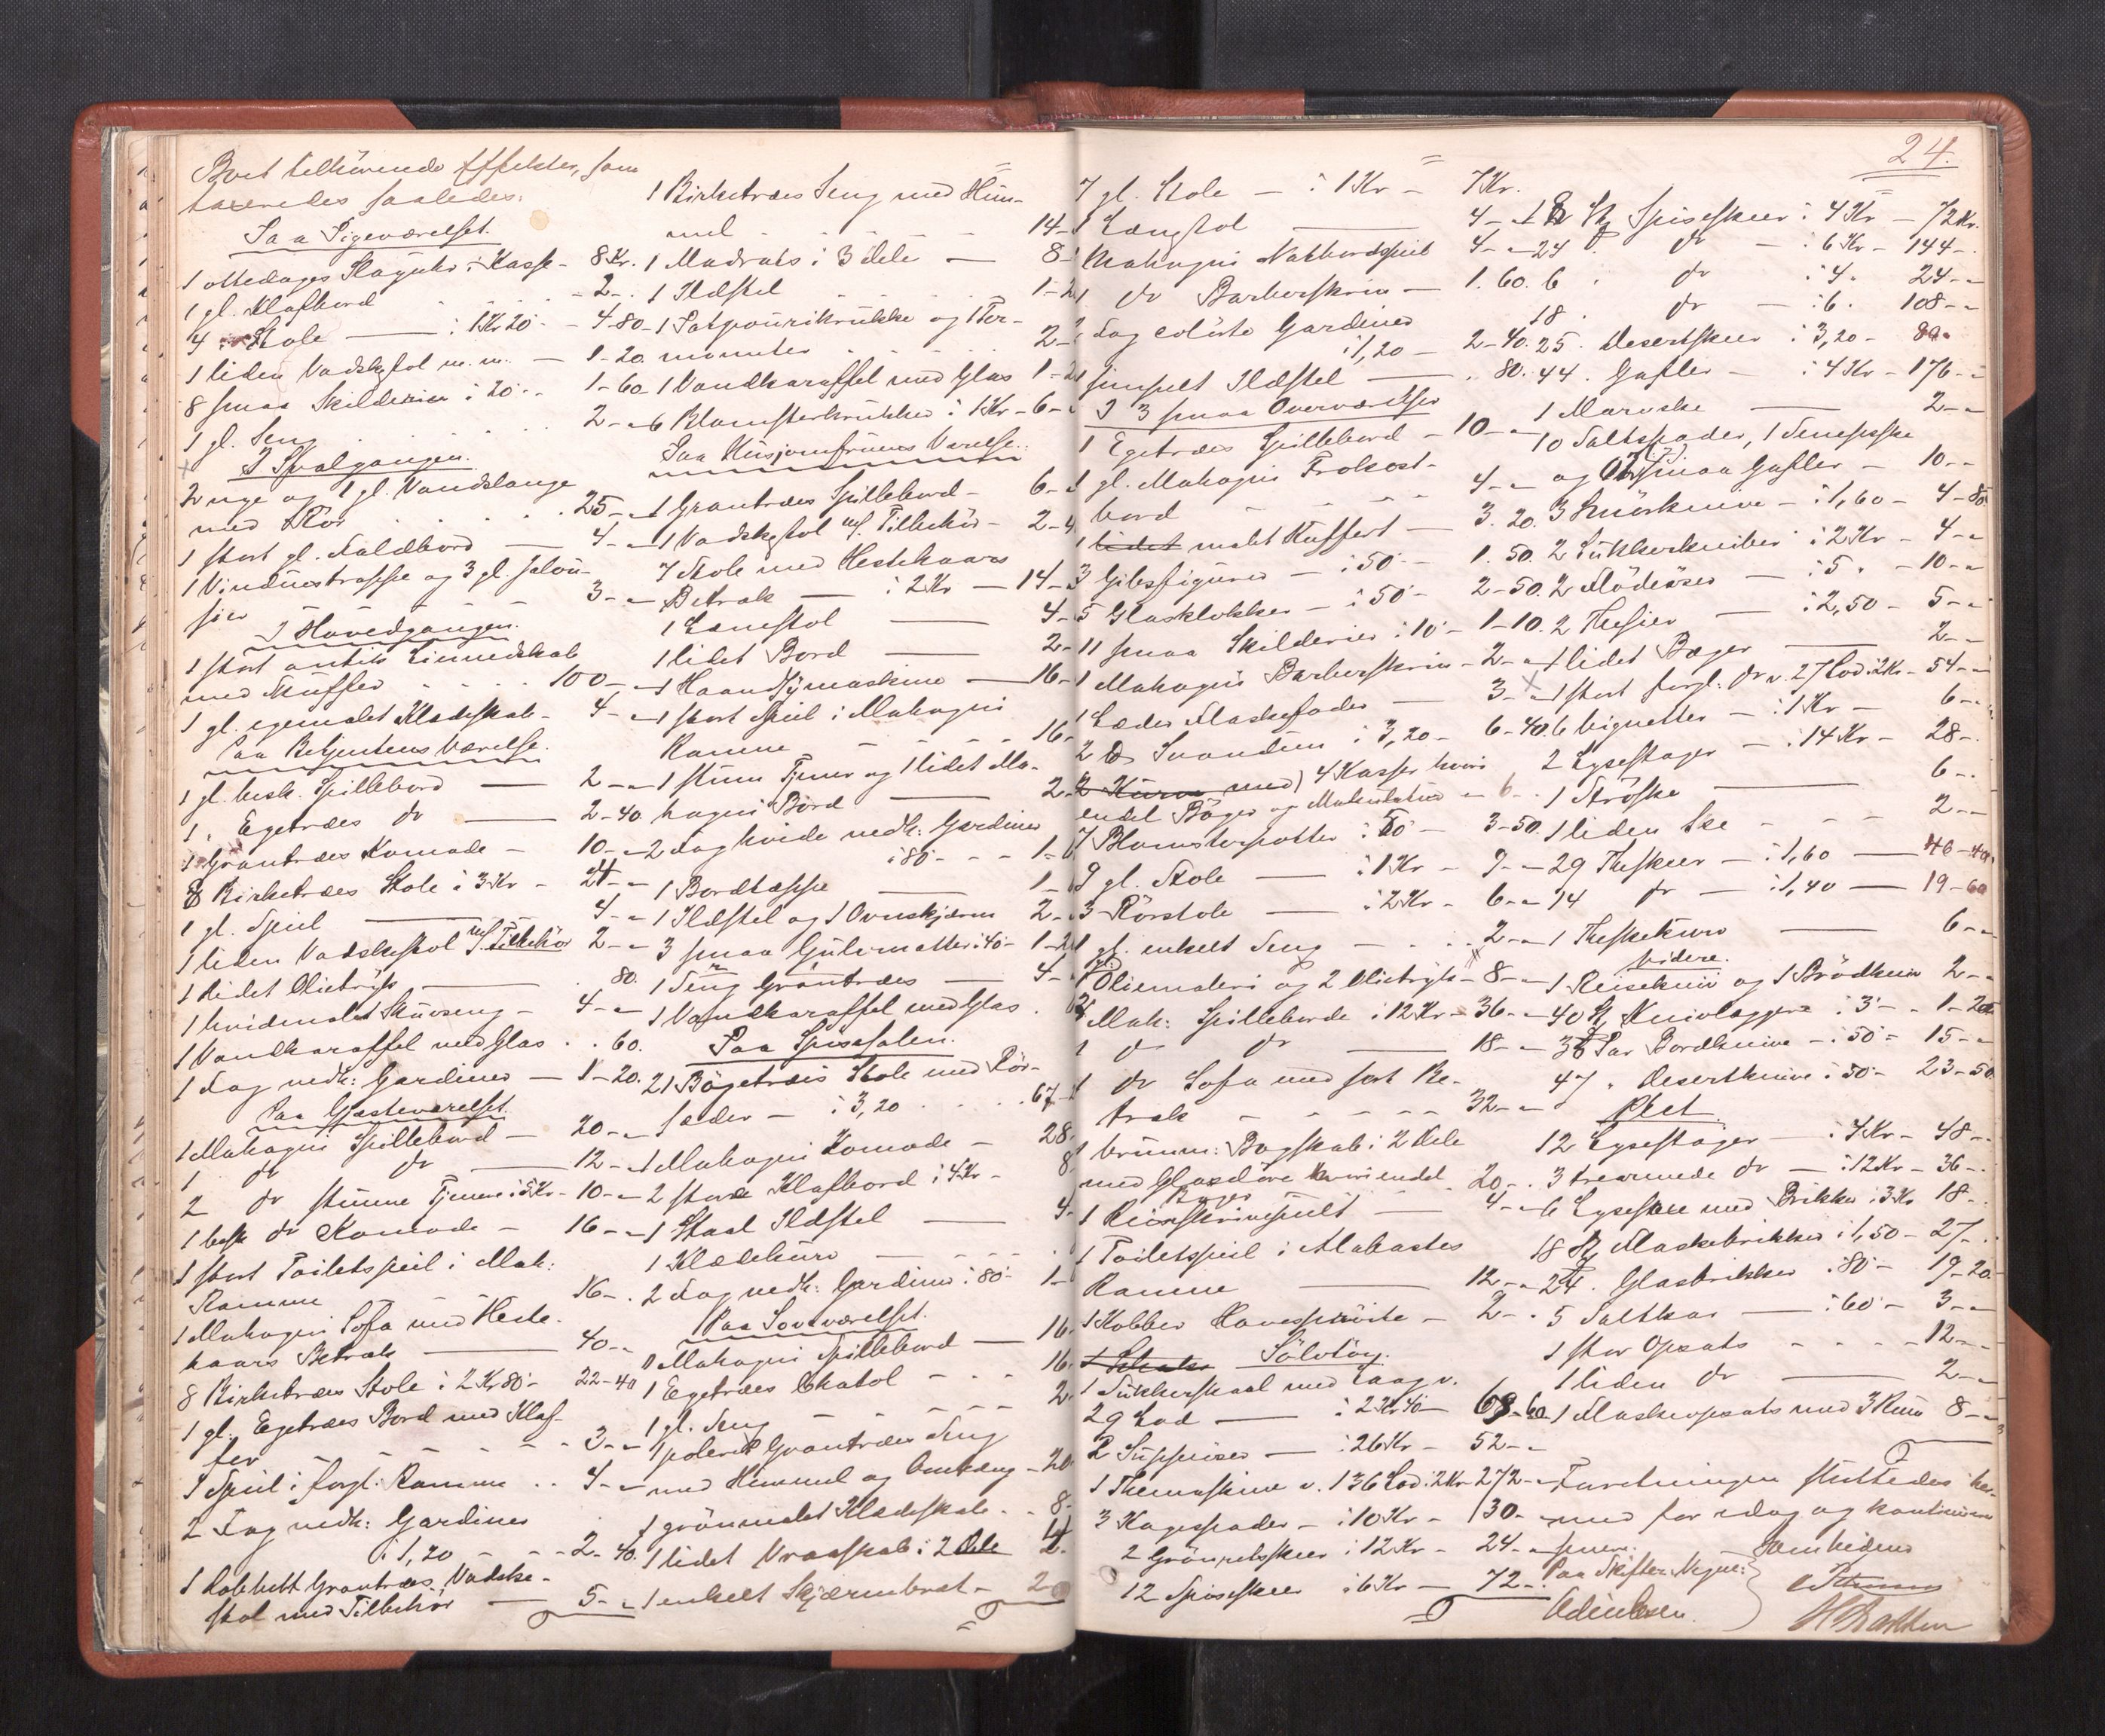 Boet tilhørende Effekter, som
taxeredes saaledes:
Paa Pigeværelset.
1 ottedages Slaguhr i Kasse - 8 Kr.
1 gl. Klafbord - 2 -
4 Stole - i 1 Kr 20 - 4-80
1 liden Vadskestol m.m. - 1-20
8 smaa Skilderier i 20 - 1-60
1 gl. Seng - 2 -
I Svalgangen.
2 nye og 1 gl. Vandslange
med Rør - 25 -
1 stort gl. Foldbord - 4 -
1 Vinduestrappe og 3 gl. Jalou-
sier - 3 -
I Hovedgangen.
1 stort antik Linnedskab
med Skuffer - 100 -
1 gl. egemalet Klædeskab - 4 -
Paa Betjentens Værelse.
1 gl. besk. Spillebord - 2 -
1 " Egetræes do - 2-40
1 Grantræes Komode - 10 -
8 Birketræes Stole i 3 Kr - 24 -
1 gl. Speil - 4 -
1 liden Vadskestol m/ Tilbehør 2 -
1 lidet Olietryk - 80
1 hvidmalet Skuvseng - 4 -
1 Vandkaraffel med Glas . . 60
1 Fag nedh: Gardiner - 1-20
Paa Gjæsteværelset.
1 Mahogni Spillebord - 20 -
1 do do - 12 -
2 do stumme Tjenere i 5 Kr - 10 -
1 besk do Komode - 16 -
1 stort Toiletspeil i Mah:
Ramme 16 -
1 Mahogni Sofa med Heste-
haars Betræk - 40 -
8 Birketræes Stole i 2 Kr 80 - 22-40
1 gl. Egetræes Bord med Klaf-
fer - 3 -
1 Speil i forgl: Ramme . . 4 -
2 Fag nedh: Gardiner
i 1,20 - 2-40
1 dobbelt Grantræes Vadske-
stol med Tilbehør - 5 -
1 Birketræes Seng med Him-
mel - 14 -
1 Madrats i 3 dele - 8 -
1 Ildstel - 1-2
1 Potpourikrukke og 1 Ter-
mometer - 2 -
1 Vandkaraffel med Glas 1-2
6 Blomsterkrukker i 1 Kr - 6 -
Paa Husjomfruens Værelse.
1 Grantræes Spillebord - 6 -
1 Vadskestol m/ Tilbehør - 2-4
7 Stole med Hestehaars
Betræk - i 2 Kr - 14 -
1 Lænestol - 4 -
1 lidet Bord - 2 -
1 Haandsymaskine - 16 -
1 stort Speil i Mahogni
Ramme - 16 -
1 stum Tjener og 1 lidet Ma-
hogni Bord - 2 -
2 Fag hvide nedh: Gardiner
i 80 - 1-6
1 Bordtæppe - 1 -
1 Ildstel og 1 Ovnskjærm 2 -
3 smaa Gulvmatter i 40 - 1-2
1 Seng Grantræes - 4 -
1 Vandkaraffel med Glas
Paa Spisesalen.
21 Bøgetræes Stole med Rør-
sæder - i 3,20 . . . 67-2
1 Mahogni Komode - 28 -
2 store Klafbord i 4 Kr - 8
1 Staal Ildstel - 4 -
1 Klædekurv
2 Fag nedh: Gardiner i 80 - 1-6
Paa Soveværelset.
1 Mahogni Spillebord - 16 -
1 Egetræes Chatol - 16
1 gl. Seng - 2
1 poleret Grantræes Seng
med Himmel og Omhæng - 20
1 grønmalet Klædeskab - 8 -
1 lidet Vraaskab i 2 Dele 2 -
1 enkelt Skjærmbræt - 2
24.
7 gl. Stole - i 1 Kr - 7 Kr.
1 Længstol - 4 -
1 Mahogni Natbordspeil 4 -
1 do Barberskrin - 1. 60
1 Fag colørte Gardiner
i 1,20 - 2-40
1 simpelt Ildstel - 80
I 3 smaa Overværelser
1 Egetræes Spillebord - 10 -
1 gl. Mahogni Frokost-
bord - 4 -
1 lidet malet Kuffert - 3. 20
3 Gibsfigurer - i 50 - 1. 50
5 Glasklokker - i 50 - 2-50
11 smaa Skilderier i 10 - 1-10
1 Mahogni Barberskrin - 2 -
1 Læder Flaskefoder - 3 -
2 Svanduns i 3,20 - 6-40
2 Kurve med 4 Kasser hvori
endel Bøger og Makulatur - 6 -
7 Blomsterpotter i 50 - 3-50
9 gl. Stole - i 1 Kr - 9 -
3 Rørstole - i 2 Kr - 6 -
1 gl. enkelt Seng - 2 -
1 gl. Oliemaleri og 2 Olietryk - 8 -
3 Mah: Spilleborde i 12 Kr - 36 -
1 do do - 18 -
1 do Sofa med sort Be-
træk - 32 -
1 brunm: Bogskab i 2 Dele
med Glasdøre hvori endel
Bøger 20 -
1 Reiseskrivepult - 4 -
1 Toiletspeil i Alabaster
Ramme - 12 -
1 Kobber Havesprøite - 2 -
Sølvtøy.
1 Sukkerskaal med Laag v.
29 Lod - i 2 Kr 40 - 69-60
2 Suppøser - i 26 Kr - 52 -
1 Themaskine v. 136 Lod i 2 Kr 272 -
3 Kagespader - i 10 Kr - 30 -
2 Grønnetskeer i 12 Kr - 24 -
12 Spiseskeer i 6 Kr - 72 -
18 St. Spiseskeer i 4 Kr - 72 Kr.
24 " do - i 6 Kr - 144 -
6 " do i 4 " 24 -
18 " do - i 6 " 108 -
25 " Desertskeer i 3,20 - 80 -
44 " Gafler - i 4 Kr - 176 -
1 Marvske - 2 -
10 Saltspader, 1 Senepsske
og 2 smaa Gafler - 10 -
3 Smørknive - i 1,60 - 4-80
2 Sukkerkniber i 2 Kr - 4 -
2 Flødeøser - i 5 " - 10 -
2 Thesier - i 2,50 - 5 -
1 lidet Bæger - 2 -
1 stort forgl: do v. 27 Lod i 2 Kr - 54 -
6 Vignetter - i 1 Kr - 6 -
2 Lysestager - i 14 Kr - 28 -
1 Strøske - 6 -
1 liden Ske - 2 -
29 Theskeer - i 1,60 - 46-40
14 do - i 1,40 - 19-60
1 Theskekurv - 6 -
videre.
1 Reisekniv og 1 Brødkniv 2 -
40 St. Knivlæggere i 3 - 1-20
30 Par Bordknive - i 50 - 15 -
47 " Desertknive i 50 - 23-50
Plet.
12 Lysestager - i 4 Kr - 48 -
3 trearmede do - i 12 Kr - 36 -
6 Lysesaxe med Brikker i 3 Kr 18 -
18 St. Flaskebrikker i 1,50 - 27 -
24 " Glasbrikker i 80 - 19-20
5 Saltkar - i 60 - 3 -
1 stor Opsats - 12 -
1 liden do - 2 -
1 Flaskeopsats med 3 Rum 8 -
Forretningen sluttedes her-
med for idag og kontinueres
senere.
Paa Skifter. Vegne:
Samhejdens